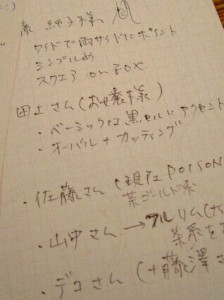 純子様
ワイドで両サイドにポイント
シンプルめ
スクエア or FOX
田上さん(お嬢様)
・ベーシックな黒セルにアクセント
・オーバル+カッティング
・佐藤さん(現在 POISON
茶ゴールド系
・山中さん→フルリム(
茶系を
・デコさん(+藤澤さ